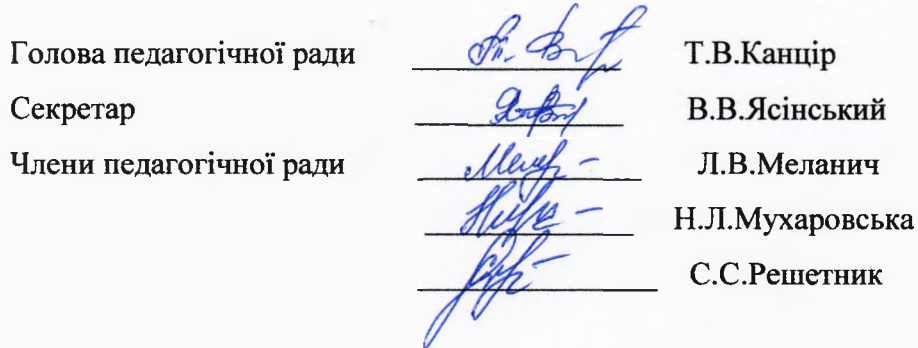 Голова педагогічної ради Т.В.Канцір
Секретар В.В.Ясінський
Члени педагогічної ради Л.В.Меланич
Н.Л.Мухаровська
С.С.Решетник